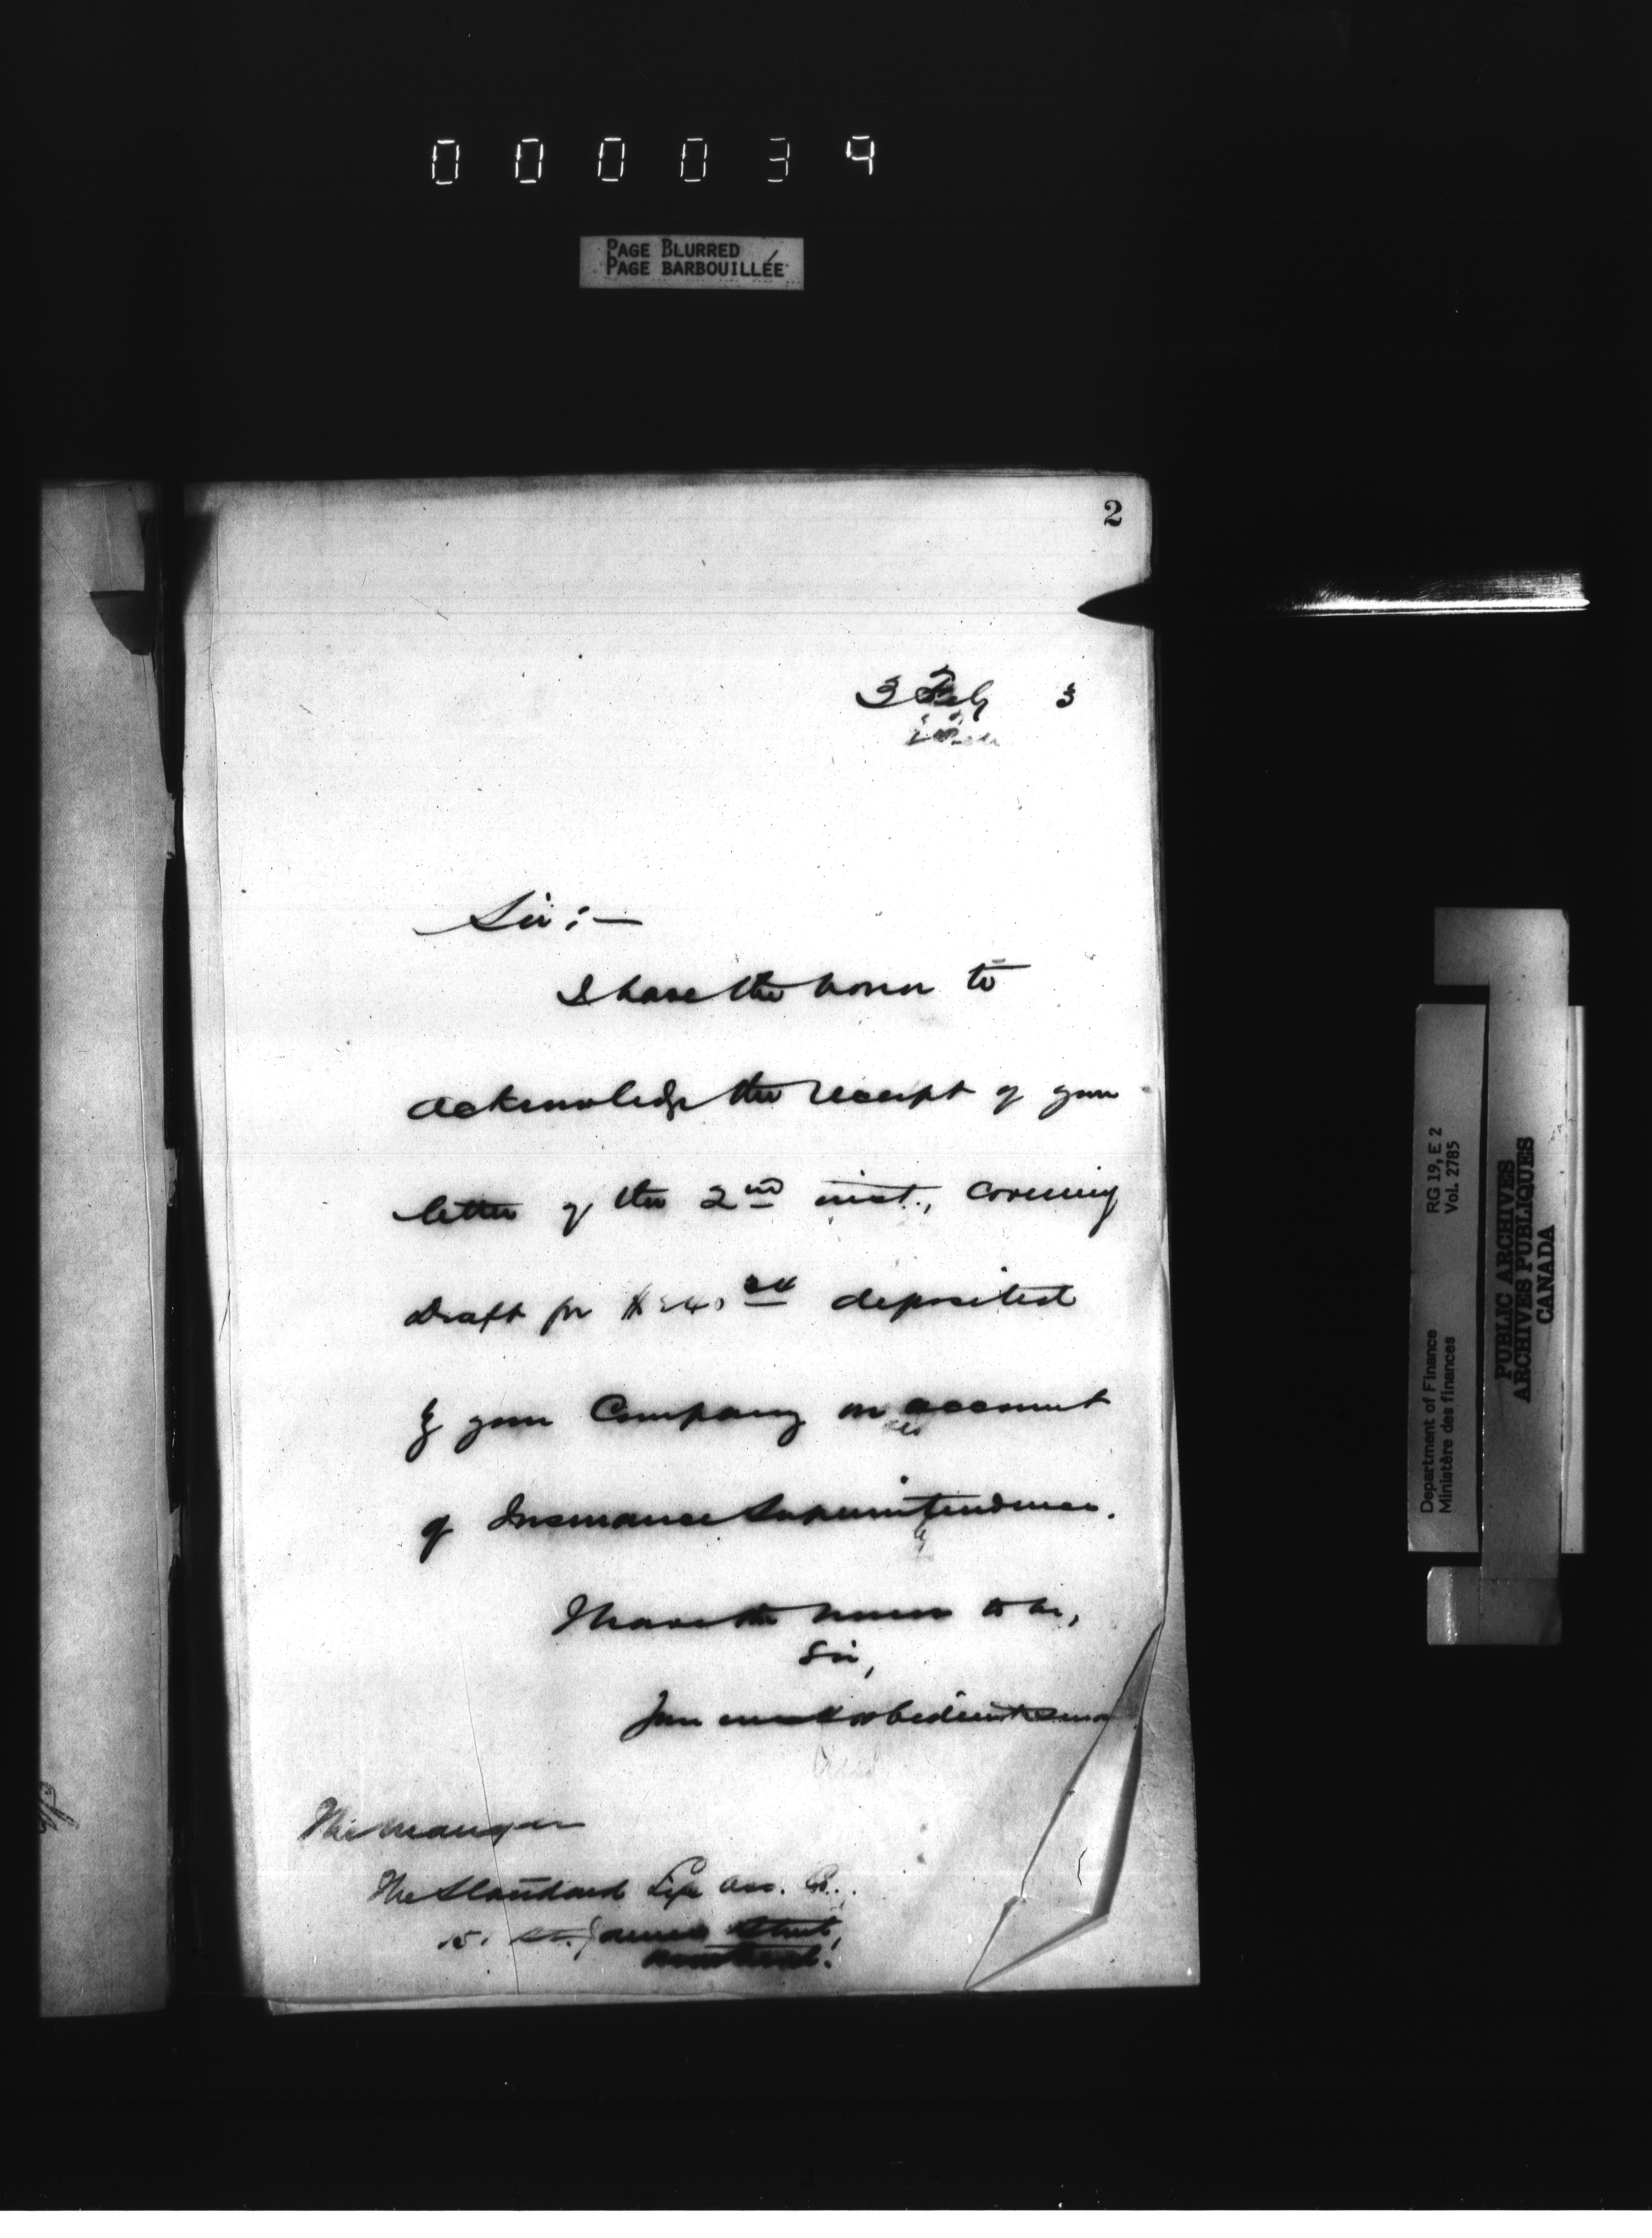 000039
PAGE BLURRED
PAGE BARBOUILLÉE
2
3 Feby 3
Sir :—
I have the honor to
acknowledge the receipt of your
letter of the 2nd inst., covering
Draft for $ deposited
by your Company on account
of Insurance Superintendence.
I have the honor to be,
Sir,
Your most obedient
The Manager
The Standard Life Ass. Co.
St. James Street,
Montreal.
Department of Finance RG 19, E 2
Ministère des finances Vol. 2785
PUBLIC ARCHIVES
ARCHIVES PUBLIQUES
CANADA